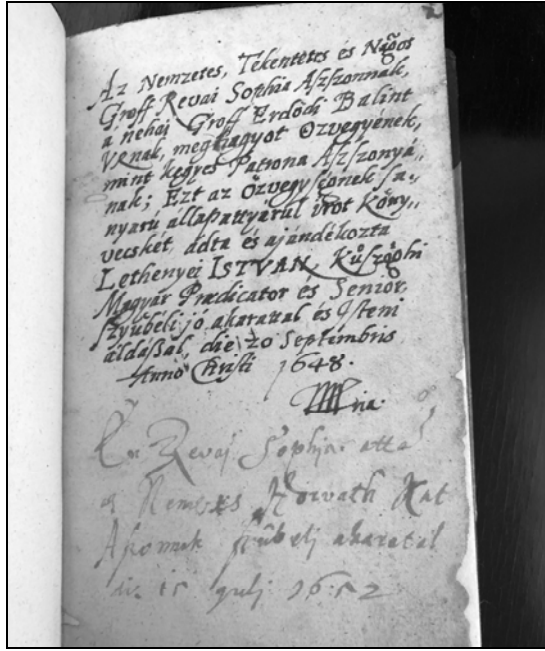 Az Nemzetes, Tekentetes és Nãgos
Groff Revai Sophia Aſzſzonnak,
a nehai Groff Erdődi Balint
Vrnak, meghagyot Ozvegyének,
mint kegyes Patrona Aſzſzonyá„
nak; Ezt az özvegyſégnek ſa„
nyarú állapattyarúl irot Köny„
vecskét, ádta és ajándékozta
Lethenyei ISTVAN, Kűſzőghi
Magyar Prædicator és Senior,
ſzyűbéli jó akarattal és Iſteni
áldáßal, die 20 Septembris
Anno Christi 1648.
Mria.
En Revaj Sophja atta
a Nemzes Horvath Kat
Aſonnak ſzübelj akaratal
die 15 julj 1652